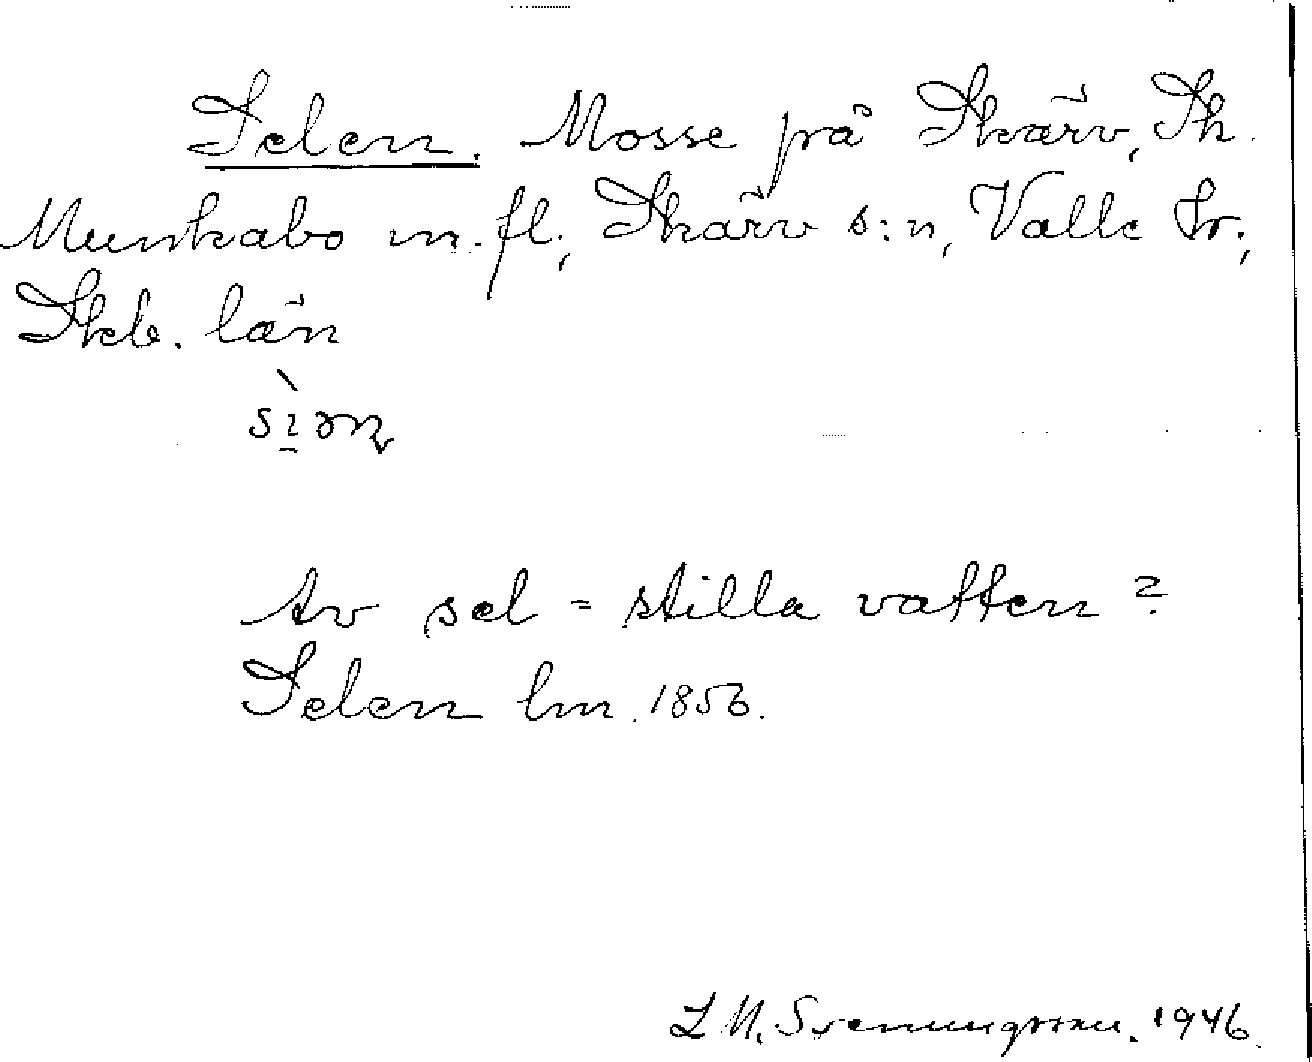 Selen. Mosse på Skärv, Sk.
Munkabo m.fl., Skärv s:n, Valle hr.,
Skb. län
Av sel = stilla vatten?
Selen lm. 1856.
L M. Svenungsson. 1946.